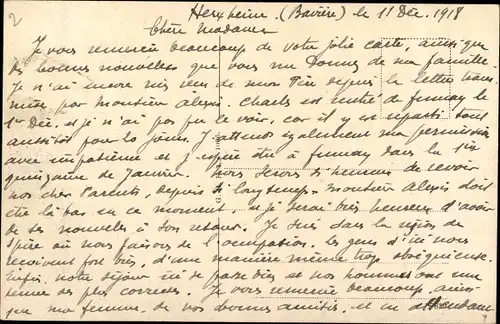 2
Herxheim (Bavière) le 11 Déc. 1918
Chère Madame
Je vous remercie beaucoup de votre jolie carte, ainsi que
des bonnes nouvelles que vous me donnez de ma famille.
Je n'ai encore rien reçu de mon Père depuis la lettre
par Monsieur Alexis. Charles est rentré de Fumay le
1er Déc. et je n'ai pas pu le voir, car il y est reparti tout
aussitôt pour 20 jours. J'attends également ma permission
avec impatience et j'espère être à Fumay dans la 1ère
quinzaine de Janvier. Nous serons si heureux de revoir
nos chers Parents, depuis si longtemps. Monsieur Alexis doit
être là bas en ce moment, et je serai très heureux d'avoir
de ses nouvelles à son retour. Je suis dans la région de
Spire où nous faisons de l'occupation. Les gens d'ici nous
reçoivent fort bien, d'une manière même trop obséquieuse.
Enfin, notre séjour ici se passe bien et nos hommes ont une
tenue des plus correctes. Je vous remercie beaucoup, ainsi
que ma femme, de vos bonnes amitiés, et en attendant